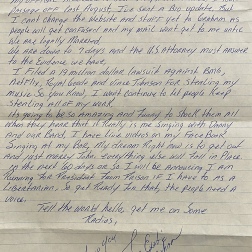 last August. I've sent a Big update. But
I can't change the website and stuff yet to Graham as
people will get confused and my mail won't get to me until
We are legally Married.
We are down to 7 days and the U.S. Attorney must answer
to the Evidence we have.
I Filed a 19 million dollar lawsuit Against BMG,
Netflix, Royal Goode and Vince Johnson For Stealing my
music. So you know, I won't continue to let people keep
Stealing all of my work.
It's going to be so Amazing and Funny to Shock them all
when they hear that it Really is me Singing with Danny
and our Band, I have live videos on my FaceBook
Singing at my Bar, My dream Right now is to get out
and Just marry Jake. Everything else will Fall in Place.
In the next 60 days or so I will be Announcing I am
Running for President From Prison. I have to as a
Libertarian. So get Ready For that, the people need a
Voice.
Tell the world hello, get me on Some
Radios,